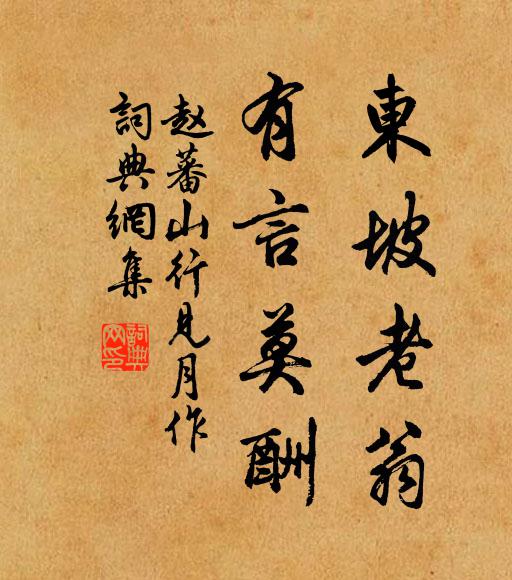 東坡老翁
有言莫酬
赵蕃山行見月作
詞典網集
詞典網印